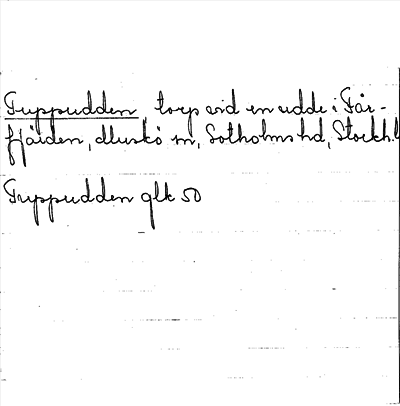 Tuppudden, torp vid en udde i Får-
fjärden, Muskö sn, Sotholms hd, Stockh. l
Tuppudden glk 50